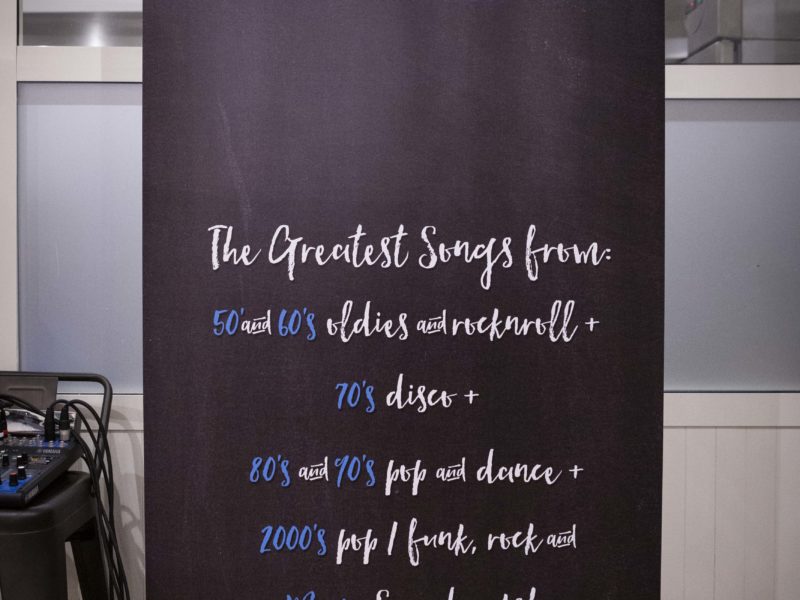 The Greatest Songs from:
50' and 60's oldies and rocknroll +
70's disco +
80's and 90's pop and dance +
2000's pop / funk, rock and
YAMAHA